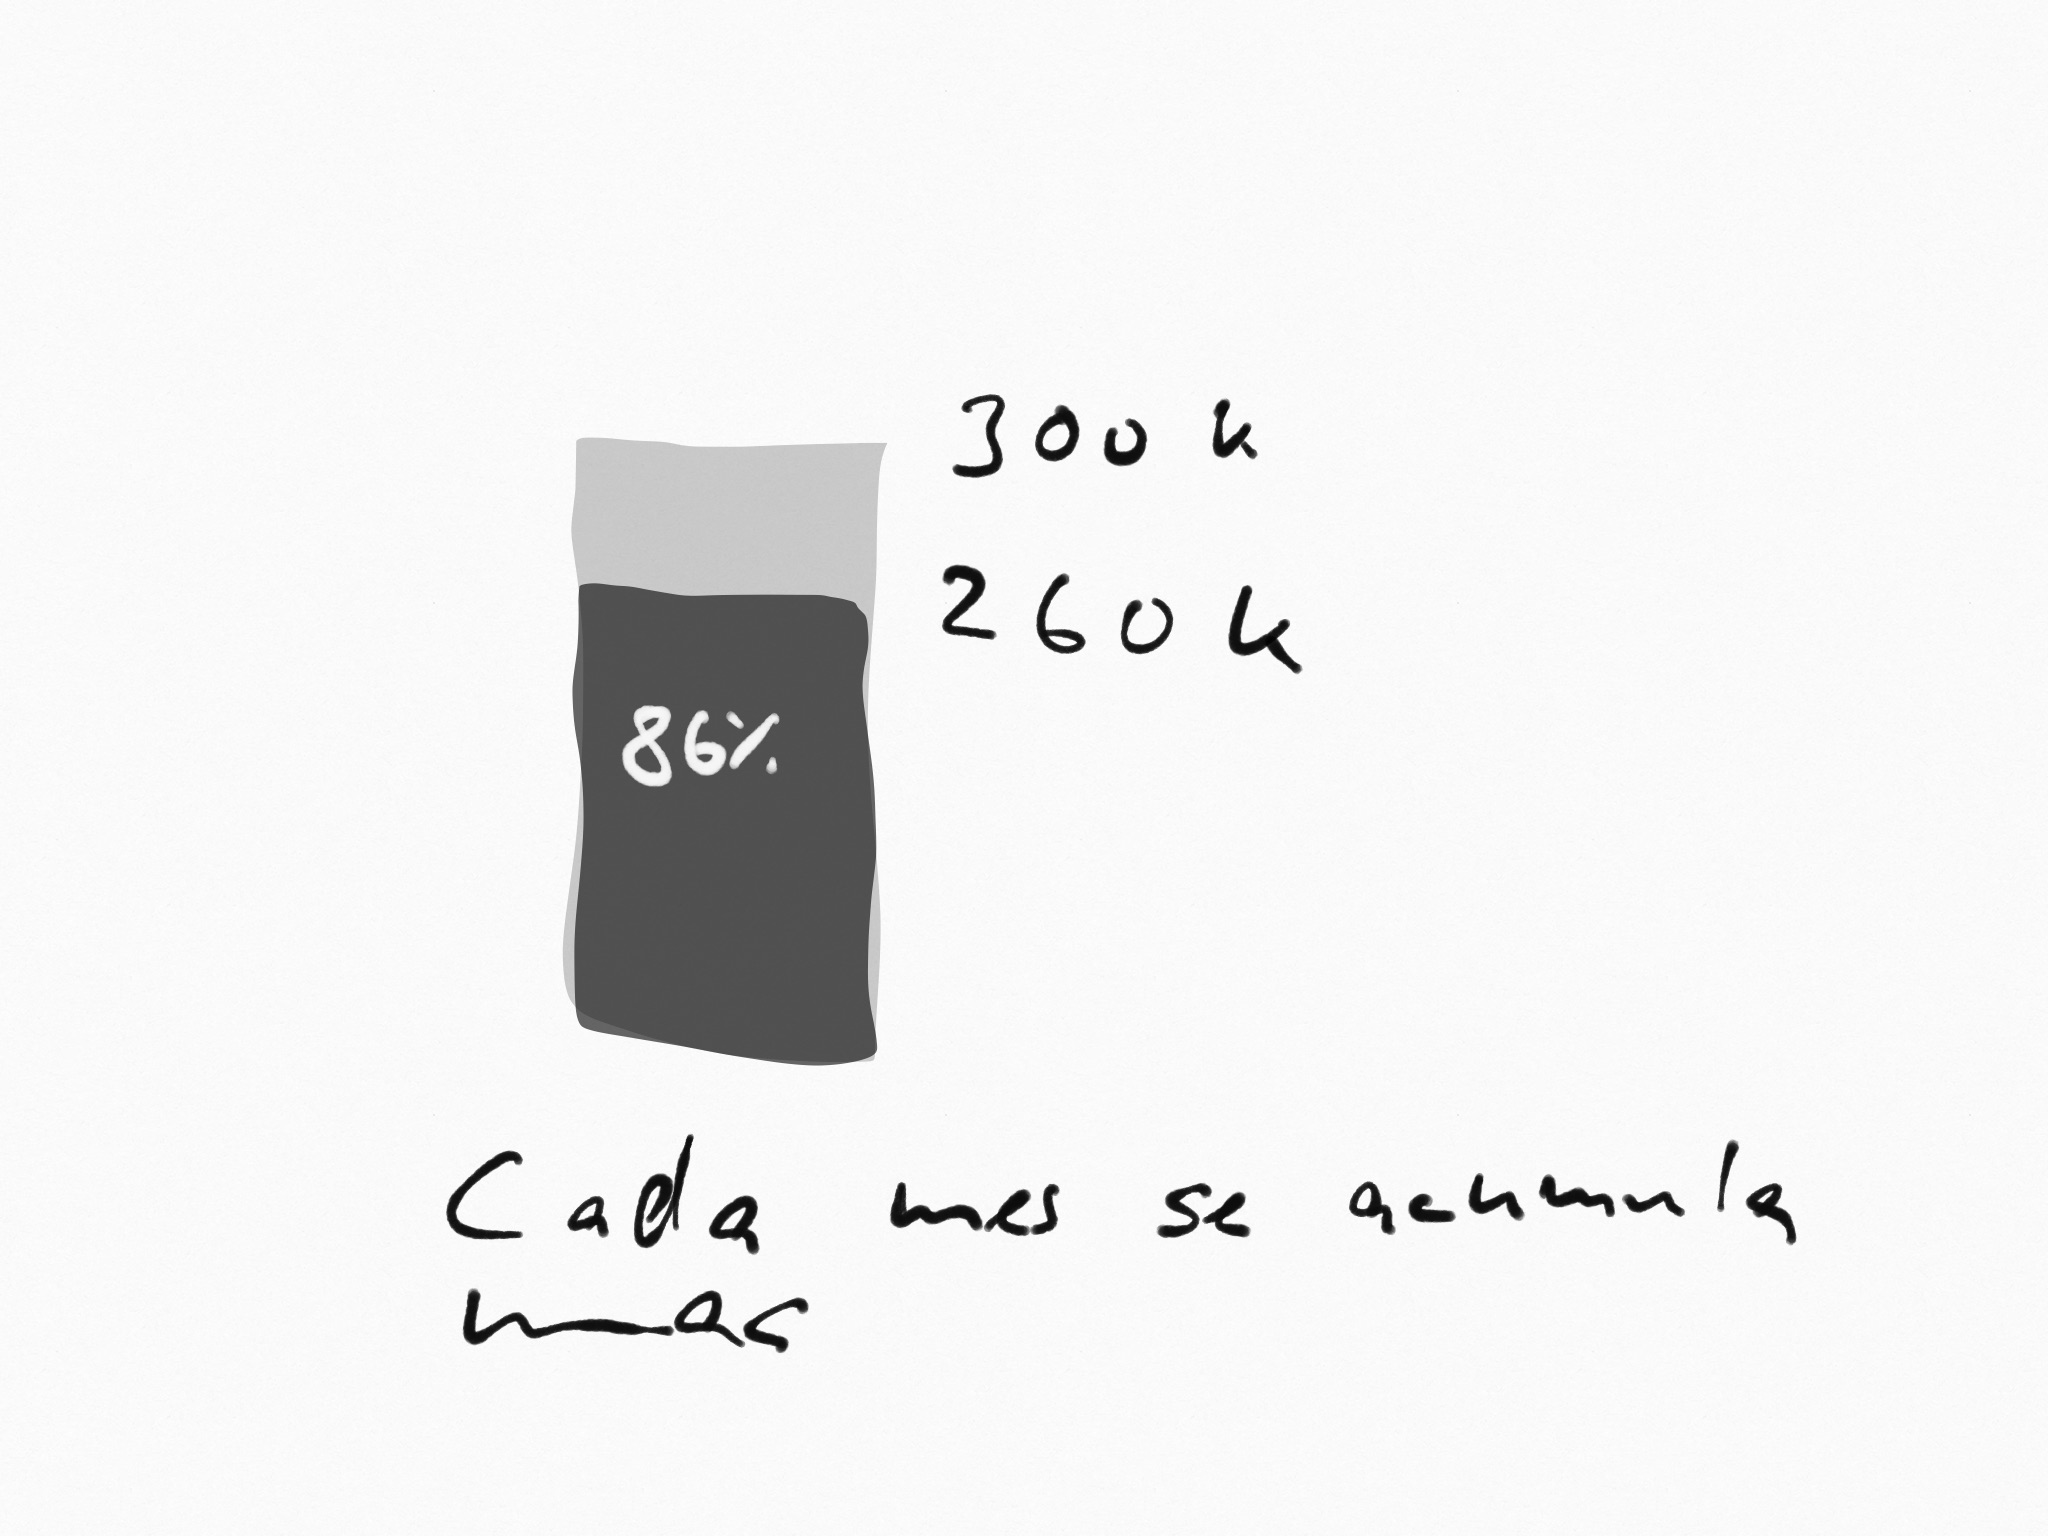 300 k
260 k
86%
Cada mes se acumula
mas